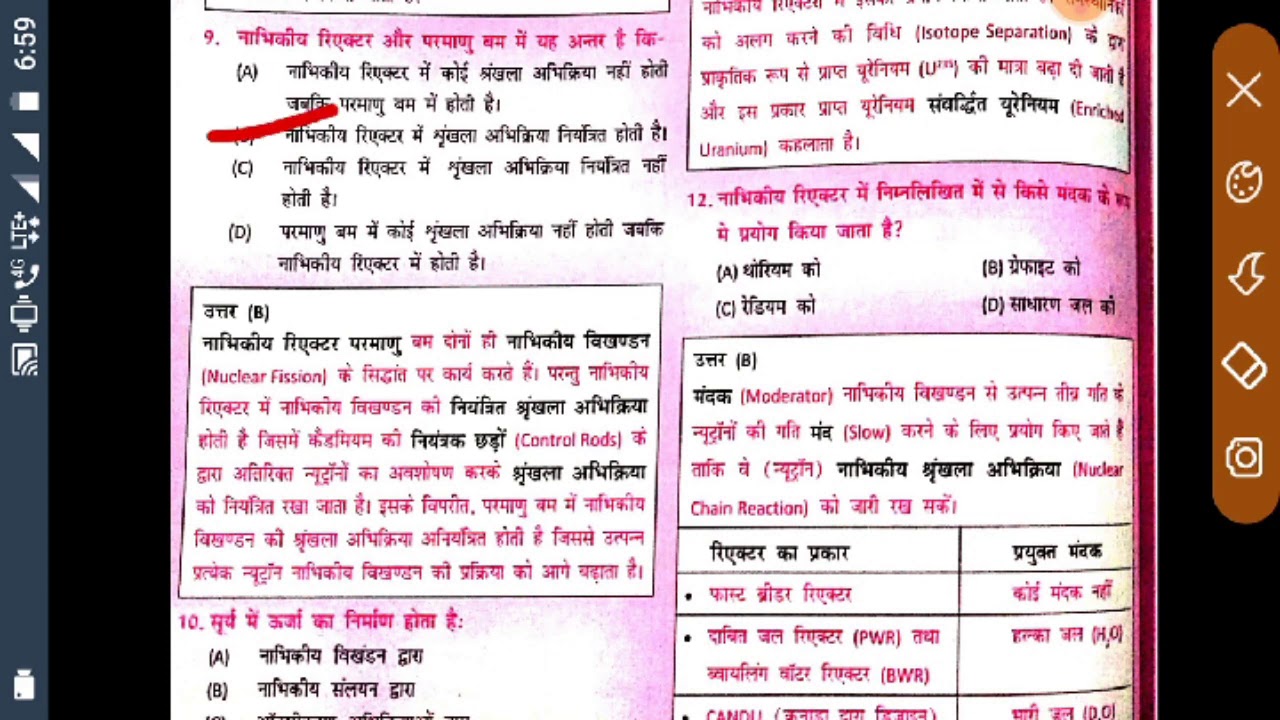 6:59
4G LTE+
9. नाभिकीय रिएक्टर और परमाणु बम में यह अन्तर है कि-
(A) नाभिकीय रिएक्टर में कोई श्रंखला अभिक्रिया नहीं होती
जबकि परमाणु बम में होती है।
नाभिकीय रिएक्टर में शृंखला अभिक्रिया नियंत्रित होती है।
(C) नाभिकीय रिएक्टर में शृंखला अभिक्रिया नियंत्रित नहीं
होती है।
(D) परमाणु बम में कोई शृंखला अभिक्रिया नहीं होती जबकि
नाभिकीय रिएक्टर में होती है।
उत्तर (B)
नाभिकीय रिएक्टर परमाणु बम दोनों ही नाभिकीय विखण्डन
(Nuclear Fission) के सिद्धांत पर कार्य करते हैं। परन्तु नाभिकीय
रिएक्टर में नाभिकीय विखण्डन की नियंत्रित श्रृंखला अभिक्रिया
होती है जिसमें कैडमियम की नियंत्रक छड़ों (Control Rods) के
द्वारा अतिरिक्त न्यूट्रॉनों का अवशोषण करके श्रृंखला अभिक्रिया
को नियंत्रित रखा जाता है। इसके विपरीत, परमाणु बम में नाभिकीय
विखण्डन की श्रृंखला अभिक्रिया अनियंत्रित होती है जिससे उत्पन्न
प्रत्येक न्यूट्रॉन नाभिकीय विखण्डन की प्रक्रिया को आगे बढ़ाता है।
10. सूर्य में ऊर्जा का निर्माण होता है:
(A) नाभिकीय विखंडन द्वारा
(B) नाभिकीय संलयन द्वारा
नाभिकीय रिएक्टरों में
को अलग करने की विधि (Isotope Separation) के द्वारा
प्राकृतिक रूप से प्राप्त यूरेनियम (U²³⁵) की मात्रा बढ़ा दी जाती है
और इस प्रकार प्राप्त यूरेनियम संवर्द्धित यूरेनियम (Enriched
Uranium) कहलाता है।
12. नाभिकीय रिएक्टर में निम्नलिखित में से किसे मंदक के रूप
मे प्रयोग किया जाता है?
(A) थोरियम को (B) ग्रेफाइट को
(C) रेडियम को (D) साधारण जल को
उत्तर (B)
मंदक (Moderator) नाभिकीय विखण्डन से उत्पन्न तीव्र गति के
न्यूट्रॉनों की गति मंद (Slow) करने के लिए प्रयोग किए जाते है
ताकि वे (न्यूट्रॉन) नाभिकीय श्रृंखला अभिक्रिया (Nuclear
Chain Reaction) को जारी रख सकें।
रिएक्टर का प्रकार प्रयुक्त मंदक
• फास्ट ब्रीडर रिएक्टर कोई मंदक नहीं
• दाबित जल रिएक्टर (PWR) तथा हल्का जल (H₂O)
ब्वायलिंग वॉटर रिएक्टर (BWR)
• CANDU (कनाडा द्वारा डिजाइन) भारी जल (D₂O)